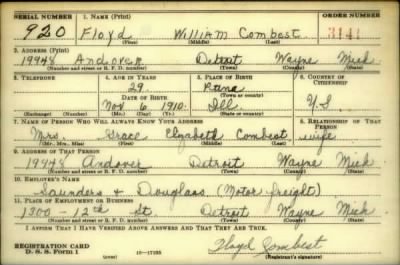 SERIAL NUMBER 1. NAME (Print) ORDER NUMBER
920 Floyd William Combest 3141
(First) (Middle) (Last)
2. ADDRESS (Print)
19948 Andover Detroit Wayne Mich
(Number and street or R. F. D. number) (Town) (County) (State)
3. TELEPHONE 4. AGE IN YEARS 5. PLACE OF BIRTH 6. COUNTRY OF CITIZENSHIP
29 Pana
DATE OF BIRTH (Town or county)
Nov 6 1910 Ill U.S.
(Exchange) (Number) (Mo.) (Day) (Yr.) (State or country)
7. NAME OF PERSON WHO WILL ALWAYS KNOW YOUR ADDRESS 8. RELATIONSHIP OF THAT PERSON
Mrs. Grace Elizabeth Combest wife
(Mr., Mrs., Miss) (First) (Middle) (Last)
9. ADDRESS OF THAT PERSON
19948 Andover Detroit Wayne Mich
(Number and street or R. F. D. number) (Town) (County) (State)
10. EMPLOYER'S NAME
Saunders & Douglass (Motor freight)
11. PLACE OF EMPLOYMENT OR BUSINESS
1300 - 12th St. Detroit Wayne Mich
(Number and street or R. F. D. number) (Town) (County) (State)
I AFFIRM THAT I HAVE VERIFIED ABOVE ANSWERS AND THAT THEY ARE TRUE.
REGISTRATION CARD Floyd Combest
D. S. S. Form 1 (over) (Registrant's signature)